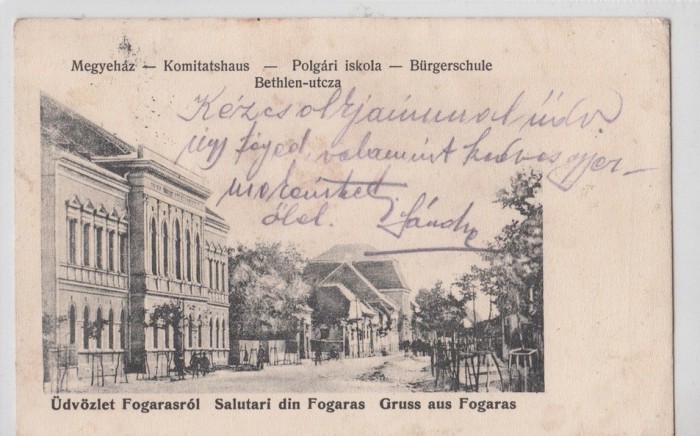 Megyeház — Komitatshaus — Polgári iskola — Bürgerschule
Bethlen-utcza
Kézcsókjaimmal üdv
úgy téged, valamint kedves gyer-
mekeinket
ölel. Sándor
Üdvözlet Fogarasról Salutari din Fogaras Gruss aus Fogaras